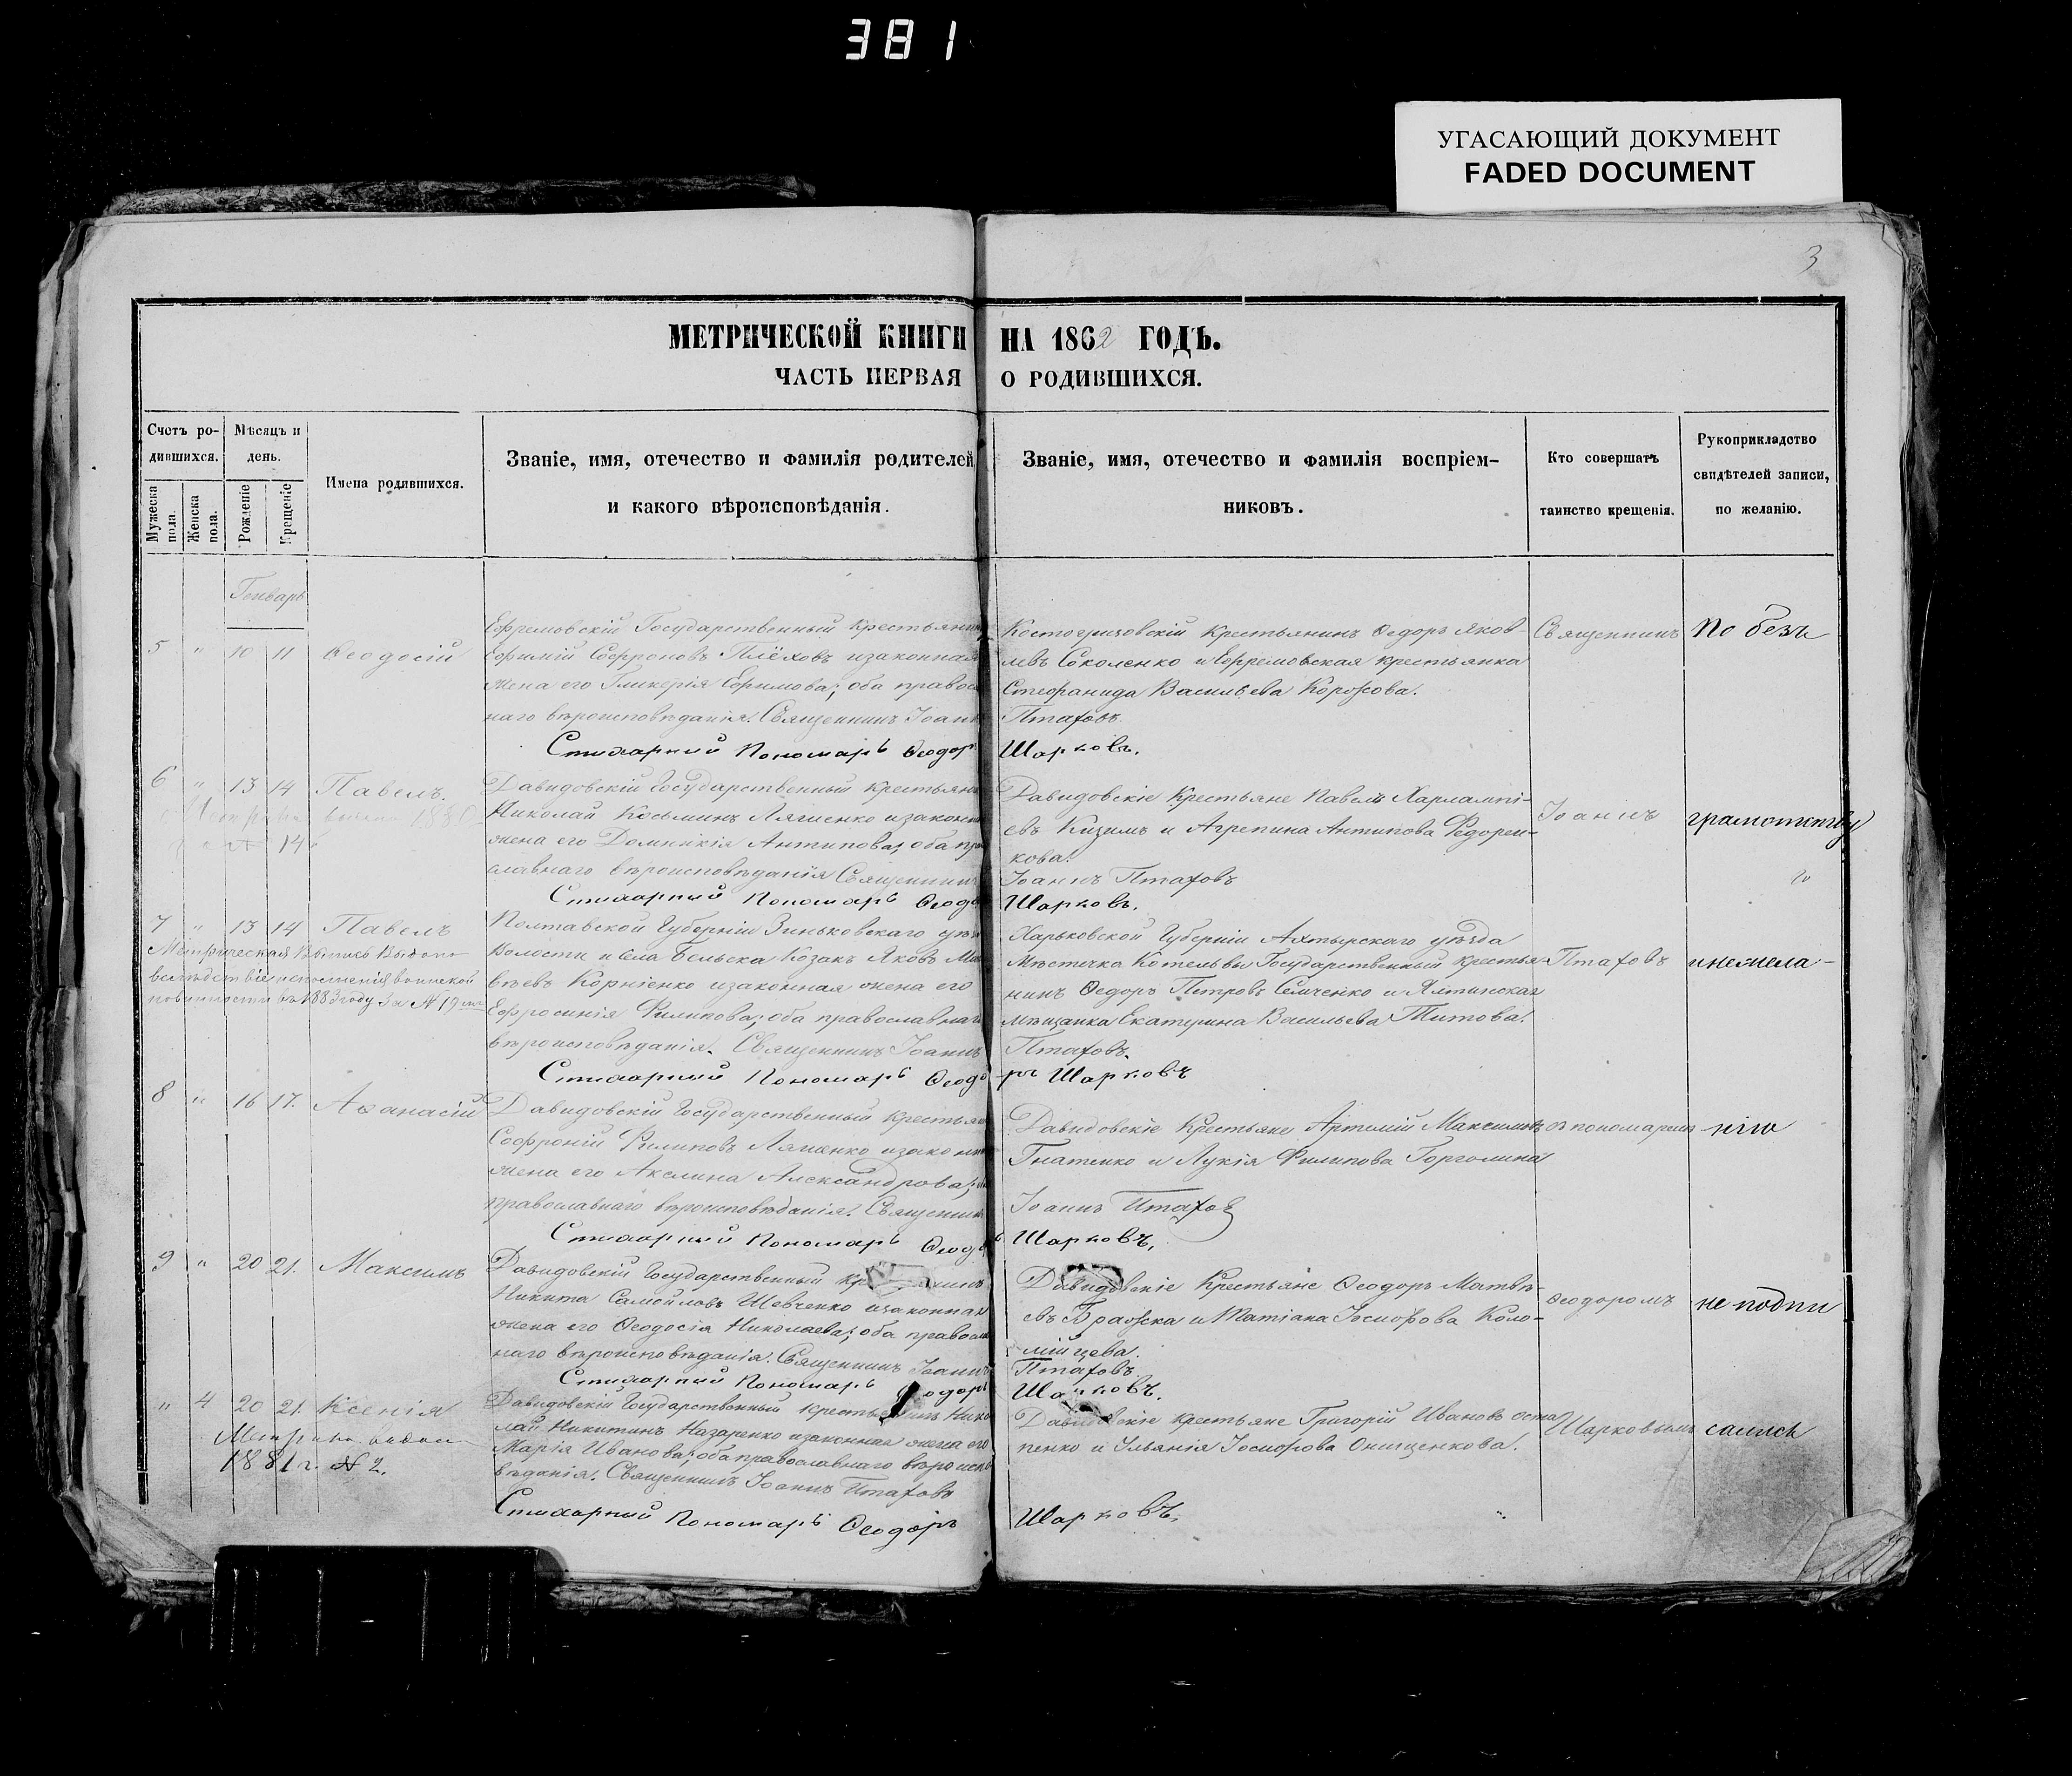 381
УГАСАЮЩИЙ ДОКУМЕНТ
FADED DOCUMENT
3
МЕТРИЧЕСКОЙ КНИГИ НА 1862 ГОДЪ.
ЧАСТЬ ПЕРВАЯ О РОДИВШИХСЯ.
Счетъ ро-
дившихся.
Мужеска пола.
Женска пола.
Мѣсяцъ и
день.
Рожденіе
Крещеніе
Имена родившихся.
Званіе, имя, отечество и фамилія родителей
и какого вѣроисповѣданія.
Званіе, имя, отечество и фамилія воспріем-
никовъ.
Кто совершатъ
таинство крещенія.
Рукоприкладство
свидѣтелей записи,
по желанію.
Генварь
5 " 10 11 Ѳеодосій
Ефремовскій Государственный крестьянин
Ефимій Софроновъ Плёховъ и законная
жена его Гликерія Ефимова; оба правосл
наго вѣроисповѣданія. Священникъ Іоанн
Стихарный Пономарь Ѳеодор
Крестьянинъ Ѳедоръ Яков-
левъ Соколенко и Ефремовская крестьянка
Стефанида Васильева
Птаховъ
Шарковъ.
Священникъ
По безъ
6 " 13 14 Павелъ.
Давидовскій Государственный крестьян
Николай Косьминъ Лягченко и законн
жена его Домникія Антипова; оба пр
славнаго вѣроисповѣданія Священник
Стихарный Пономарь Ѳеод
Давидовскіе Крестьяне Павелъ Харлампі-
евъ Кизимъ и Агрепина Антипова Федорен-
кова.
Іоаннъ Птаховъ
Шарковъ.
Іоаннъ
7 " 13 14 Павелъ
Метрическая Выпись
1883 году за № 19
Полтавской Губерніи Зиньковскаго уѣз
Волости и села Бельска Козакъ Яковъ Ма
вѣевъ Корніенко и законная жена его
Ефросинія Филипова; оба православнаг
вѣроисповѣданія. Священникъ Іоаннъ
Стихарный Пономарь Ѳеодо
Харьковской Губерніи Ахтырскаго уѣзда
Мѣстечка Котельвы Государственный крестья-
нинъ Ѳедоръ Петровъ Семченко и Ялтинская
мѣщанка Екатерина Васильева Титова.
Птаховъ.
ръ Шарковъ
Птаховъ
8 " 16 17. Аѳанасій
Давидовскій Государственный крестьян
Софроній Филиповъ и законн
жена его Акелина Александрова;
православнаго вѣроисповѣданія. Священник
Стихарный Пономарь Ѳеод
Давидовскіе Крестьяне Артемій Максимовъ
Гнатенко и Лукія Филипова
Іоаннъ Птахов
Шарковъ.
съ пономаремъ
нію
9 " 20 21. Максимъ
Давидовскій Государственный
Никита Самойловъ Шевченко и законная
жена его Ѳеодосія Николаева; оба правосл
наго вѣроисповѣданія. Священникъ Іоаннъ
Стихарный Пономарь Ѳеодоръ
Давидовскіе Крестьяне Ѳеодоръ Матвѣ-
евъ и Татіана Іосифова Коло-
мійцева.
Птаховъ.
Шарковъ.
Ѳеодоромъ
не подпи
" 4 20 21. Ксенія
1881 г. № 2.
Давидовскій Государственный крестьянинъ Нико
лай Никитинъ Назаренко и законная жена его
Марія Иванова; оба православнаго вѣроиспо
вѣданія. Священникъ Іоаннъ Птаховъ
Стихарный Пономарь Ѳеодоръ
Давидовскіе крестьяне Григорій Ивановъ Оста
пенко и Ульянія Іосифова Онищенкова.
Шарковъ.
Шарковымъ
сались